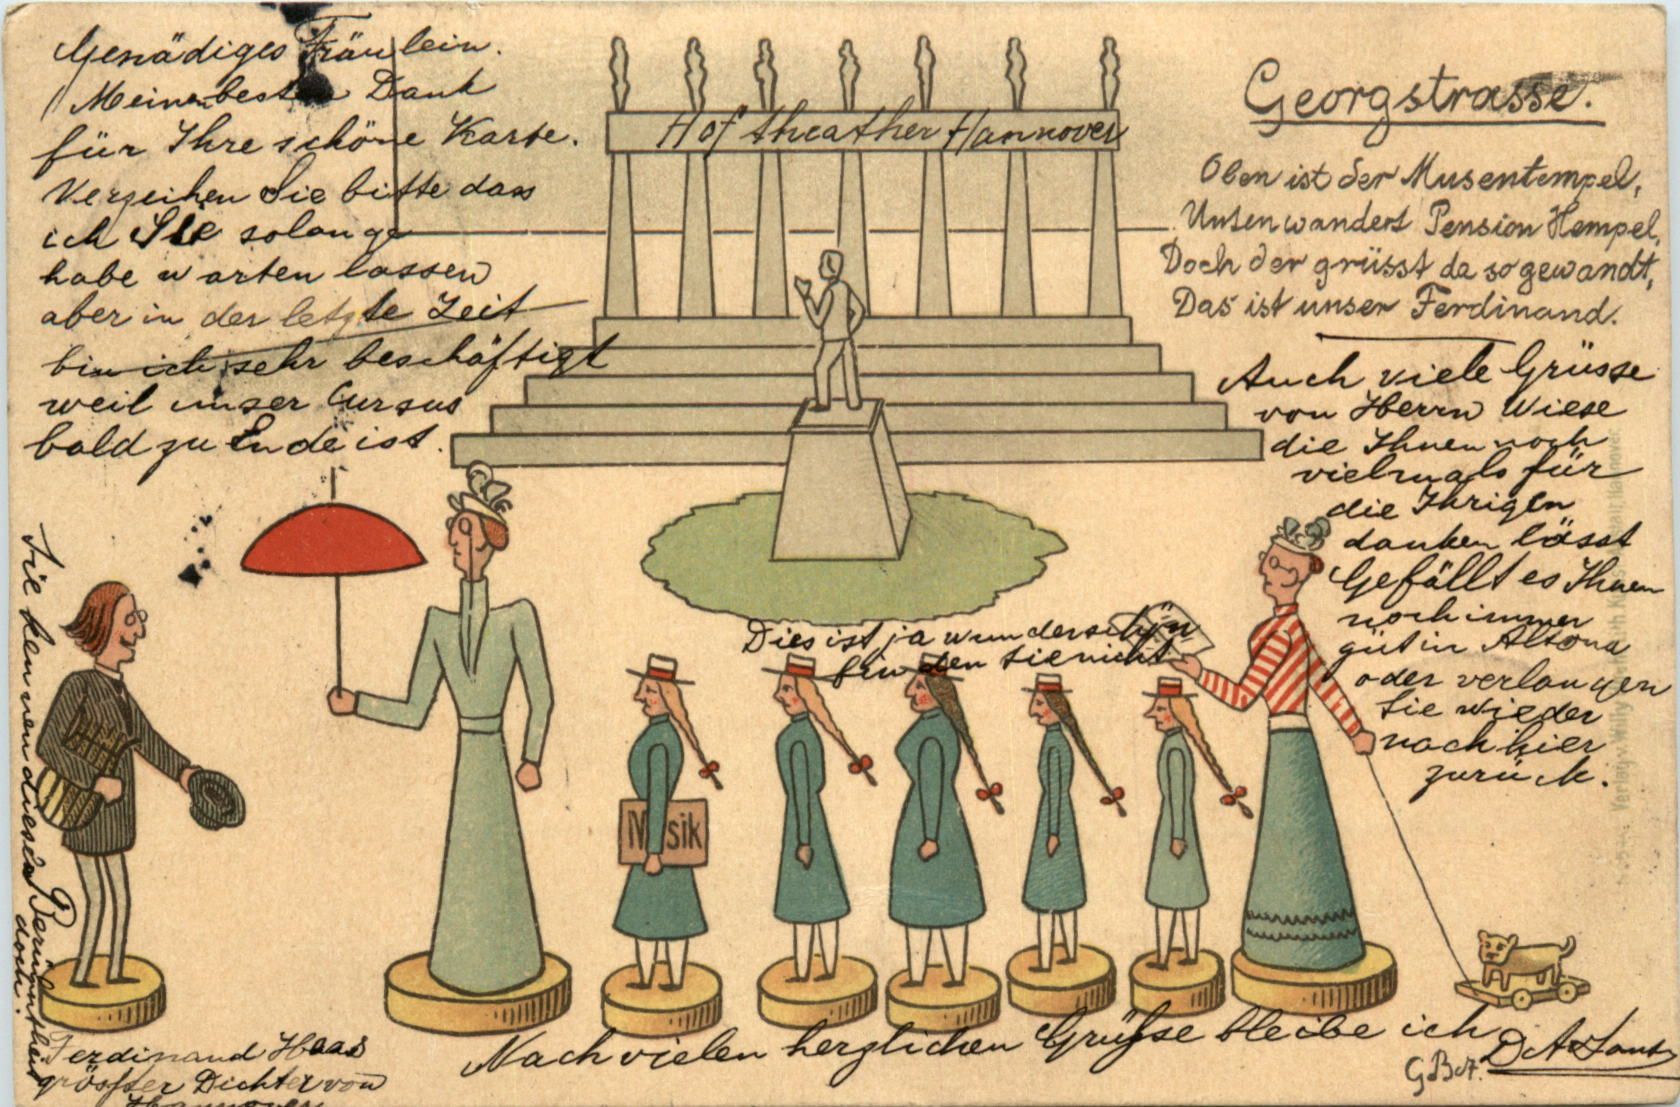 Genädiges Fräulein.
Meinen besten Dank
für Ihre schöne Karte.
Verzeihen Sie bitte dass
ich Sie solange
habe warten lassen
aber in der letzte Zeit
bin ich sehr beschäftigt
weil unser Cursus
bald zu Ende ist.
Hof theather Hannover
Georgstrasse.
Oben ist der Musentempel,
Unten wandert Pension Hempel,
Doch der grüsst da so gewandt,
Das ist unser Ferdinand.
Auch viele Grüsse
von Herrn Wiese
die Ihnen noch
vielmals für
die Ihrigen
danken lässt
Gefällt es Ihnen
noch immer
gut in Altona
oder verlangen
Sie wieder
nach hier
zurück.
Dies ist ja wunderschön
finden Sie nicht
Musik
Sie kennen diesen Berühmtheit
doch.
Ferdinand Haas
grösster Dichter von
Hannover
Nach vielen herzlichen Grüsse bleibe ich
Verlag v. Willy